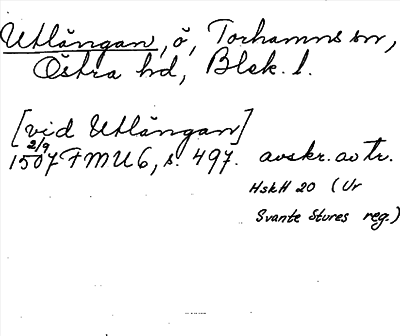 Utlängan, ö, Torhamns sn,
Östra hd, Blek. l.
[vid Utlängan]
2/9
1507 FMU 6, s. 497. avskr. av tr.
HskH 20 (Ur
Svante Stures reg.)